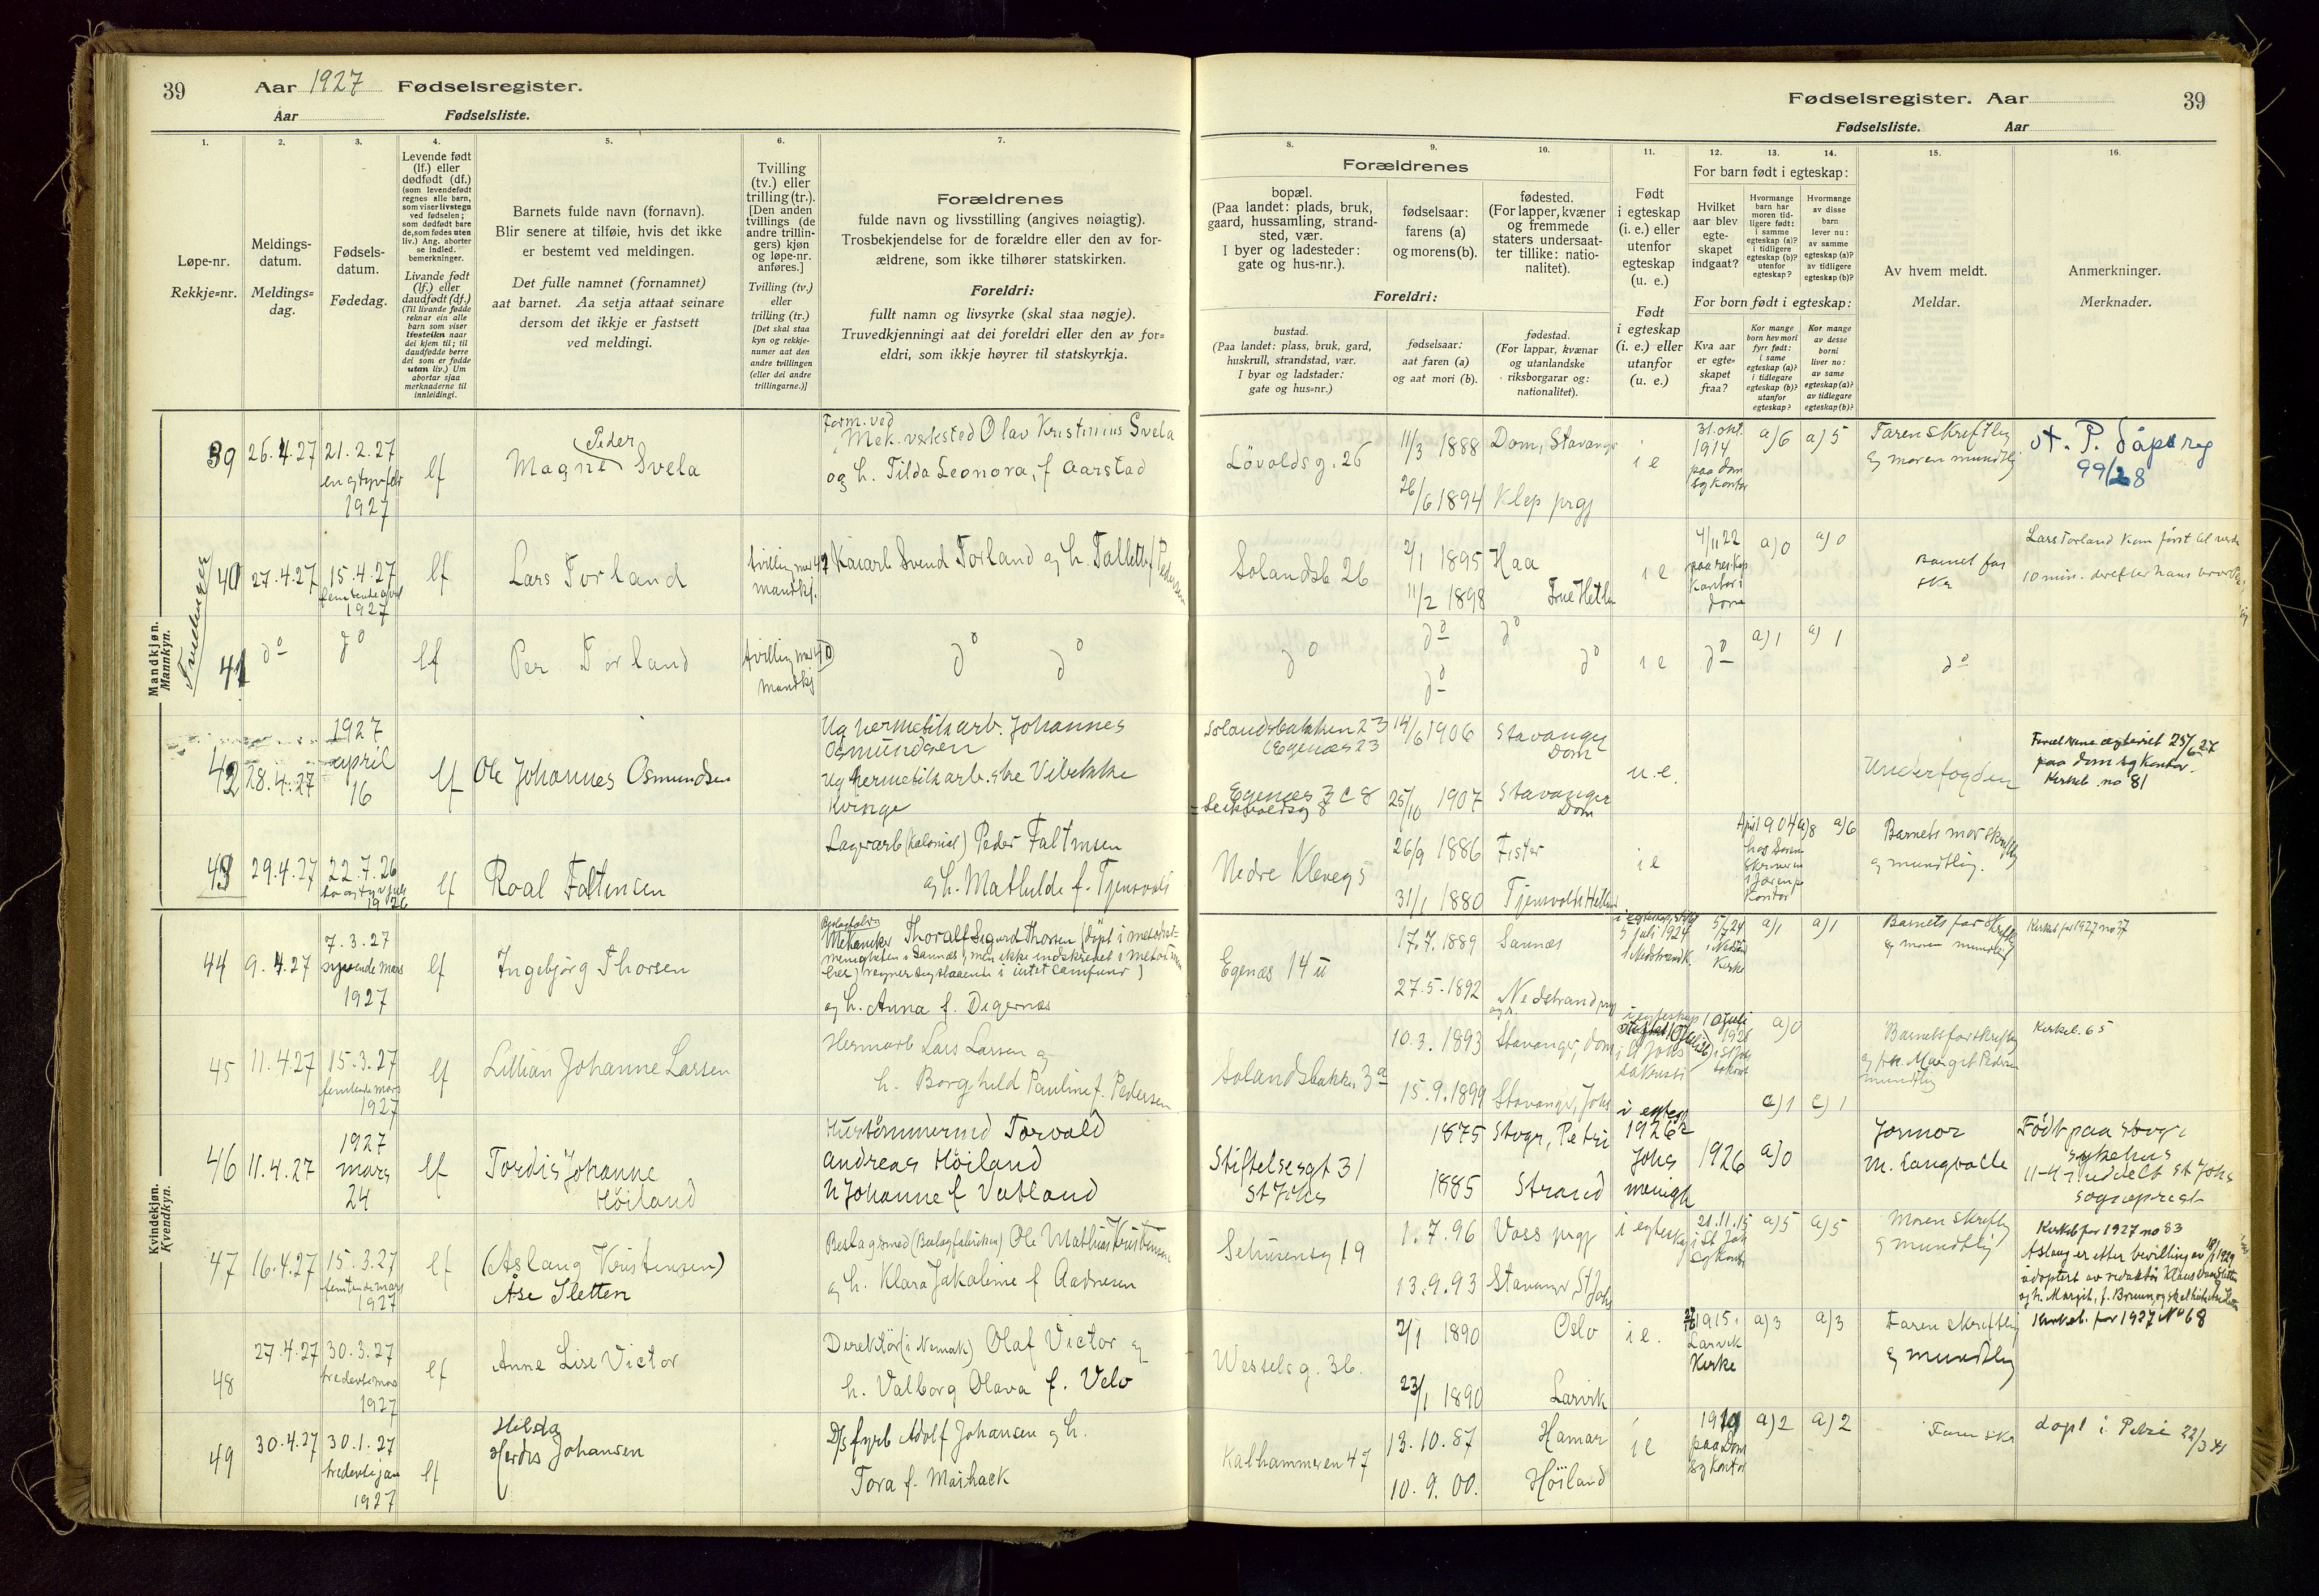 39
Aar 1927 Fødselsregister.
Aar Fødselsliste.
1.
2.
3.
4.
5.
6.
7.
Løpe-nr.
Rekkje=nr.
Meldings-
datum.
Meldings=
dag.
Fødsels-
datum.
Fødedag.
Levende født
(lf.) eller
dødfødt (df.)
(som levendefødt
regnes alle barn,
som viser livstegn
ved fødselen;
som dødfødt bare
de, som fødes uten
liv.) Ang. aborter
se indled.
bemerkninger.
Livande født
(lf.) eller
daudfødt (df.)
(Til livande fødde
reknar ein alle
barn som viser
livsteikn naar
dei kjem til; til
daudfødde berre
dei som er fødde
utan liv.) Um
abortar sjaa
merknaderne til
innleidingi.
Barnets fulde navn (fornavn).
Blir senere at tilføie, hvis det ikke
er bestemt ved meldingen.
Det fulle namnet (fornamnet)
aat barnet. Aa setja attaat seinare
dersom det ikkje er fastsett
ved meldingi.
Tvilling
(tv.) eller
trilling (tr.).
[Den anden
tvillings (de
andre trillin-
gers) kjøn
og løpe-nr.
anføres.]
Tvilling (tv.)
eller
trilling (tr.)
[Det skal staa
kyn og rekkje-
numer aat den
andre tvillingen
(eller dei andre
trillingarne.)]
Forældrenes
fulde navn og livsstilling (angives nøiagtig).
Trosbekjendelse for de forældre eller den av for-
ældrene, som ikke tilhører statskirken.
Foreldri:
fullt namn og livsyrke (skal staa nøgje).
Truvedkjenningi aat dei foreldri eller den av for-
eldri, som ikkje høyrer til statskyrkja.
Mandkjøn.
Mannkyn.
39 26.4.27 21.2.27 lf Magne Peder Svela
1927
Form. ved
Mek. verksted Olav Kristinius Svela
og h. Tilda Leonora, f Aarstad
Tvillinger
40 27.4.27 15.4.27 lf Lars Torland
1927
tvilling med 47
mandkj.
Svend Torland og h.
41 do do lf Per Torland
tvilling med 40
mandkj
do do
42 28.4.27 1927
april
16
lf Ole Johannes Osmundsen
Ug hermetikarb. Johannes
Osmundsen
Ug hermetikarb.ske Vibekke
Kvinge
43 29.4.27 22.7.26 lf Roal Faltinsen
Lagerarb (Kolonial) Peder Faltinsen
og h. Mathilde f. Tjensvold
Kvindekjøn.
Kvendkyn.
44 9.4.27 7.3.27
syvende mars
1927
lf Ingebjörg Thorsen
Mekaniker Thoralf Sigurd Thorsen
og h. Anna f. Digernes
45 11.4.27 15.3.27
femtende mars
1927
lf Lillian Johanne Larsen
Hermarb Lars Larsen og
h. Borghild Pauline f. Pedersen
46 11.4.27 1927
mars
24
lf Tordis Johanne
Höiland
Hustömmermd Torvald
Andreas Höiland
h Johanne f Vatland
47 16.4.27 15.3.27
femtende mars
1927
lf (Aslaug Kristensen)
Åse Sletten
Beslagsmed (Beslagfabriken) Ole Mathias Kristensen
og h. Klara Jakobine f Aadnesen
48 27.4.27 30.3.27
1927
lf Anne Lise Victor
Direktör Olaf Victor og
h. Valborg Olava f. Velo
49 30.4.27 30.1.27
1927
lf Hilda
Herdis Johansen
D/s fyrb Adolf Johansen og h.
Tora f. Maihack
Fødselsregister. Aar
39
Fødselsliste. Aar
8.
9.
10.
11.
12.
13.
14.
15.
16.
Forældrenes
bopæl.
(Paa landet: plads, bruk,
gaard, hussamling, strand-
sted, vær.
I byer og ladesteder:
gate og hus-nr.).
fødselsaar:
farens (a)
og morens (b).
fødested.
(For lapper, kvæner
og fremmede
staters undersaat-
ter tillike: natio-
nalitet).
Foreldri:
bustad.
(Paa landet: plass, bruk, gard,
huskrull, strandstad, vær.
I byar og ladstader:
gate og hus=nr.)
fødselsaar:
aat faren (a)
og aat mori (b).
fødestad.
(For lappar, kvænar
og utanlandske
riksborgarar og:
nationalitet).
Født
i egteskap
(i. e.) eller
utenfor
egteskap
(u. e.)
Født
i egteskap
(i. e.) eller
utanfor
(u. e.)
For barn født i egteskap:
Hvilket
aar blev
egte-
skapet
indgaat?
Hvormange
barn har
moren tid-
ligere født:
i samme
egteskap (a)?
i tidligere
egteskap (b)?
utenfor
egteskap?
Hvormange
av disse
barn
lever nu:
av samme
egteskap (a)?
av tidligere
egteskap (b)?
For born født i egteskap:
Kva aar
er egte=
skapet
fraa?
Kor mange
born hev mori
fyrr født:
i same
egteskap (a)?
i tidlegare
egteskap (b)?
utanfor
egteskap?
Kor mange
av desse
borni
liver no:
av same
egteskap (a)?
av tidlegare
egteskap (b)?
Av hvem meldt.
Meldar.
Anmerkninger.
Merknader.
Lövoldsg. 26 11/3 1888 Dom, Stavanger
26/6 1894 Klep prgj
i e
31. okt.
1914
paa dom
sg Kontor
a) 6 a) 5
Faren skriftlig
og moren mundtlig
99/28
Solandsb 26 2/1 1895 Haa
11/2 1898
i e
4/11 22
a) 0 a) 0
Barnet far
skr
Lars Torland kom först til verden
10 min. derefter hans bror
do do do
do do
i e do a) 1 a) 1 do
Solandsbakken 23
(Egenæs 23
14/6 1906 Stavanger
Dom
Egenæs 3 C 8
25/10 1907 Stavanger
Dom
u.e.
Underfogden
25/6 27
paa dom sg Kontor.
Kirkeb. no 81
Nedre Kleveg 5 26/9 1886 Fister
31/1 1880
i e
April 1904 a) 8 a) 6
Kontor
Barnets mor skriftlig
og mundtlig.
Egenæs 14 II 17.7.1889 Sannes
27.5.1892 Nedstrand prgj
5/7 24
Kirke
a) 1 a) 1
Barnets far skriftl
og moren mundtlig
Kirkeb for 1927 no 37
Solandsbakke 3a 10.3.1893 Stavanger, dom
15.9.1899 Stavanger, Johs
a) 0
Barnets far skriftlig
og frk. Margit Pedersen
mundtlig
Kirkeb. 65
Stiftelsesgt 31
St Johs
1875 Stvgr, Petri
1885 Strand
1926
Johs
menigh
1926 a) 0
c) 1 c) 1
Jormor
M. Langvolle
Födt paa stvgr
sykehus
St Johs
sogneprest
Sehusensg 19 1.7.96 Voss prgj
13.9.93 Stavanger St Joh
i egteskap
21.11.15
i St Joh
sg Kontor
a) 5 a) 5
Moren skriftlig
og mundtlig
Kirkeb for 1927 no 83
Aslaug er efter bevilling av 18/1 1929
adoptert av redaktör Klaus Sletten
og h. Margit, f. Bruun, og skal hete Åse Sletten
Wesselsg. 36. 2/1 1890 Oslo
23/1 1890 Larvik
i e.
1915.
Larvik
Kirke
a) 3 a) 3
Faren skriftlig
og mundtlig
Kirkeb. for 1927 No 68
Kalhammeren 47 13.10.87 Hamar
10.9.00. Höiland
i e
paa Dom
sg Kontor
a) 2 a) 2
Faren skr
döpt i Petri 22/3 41